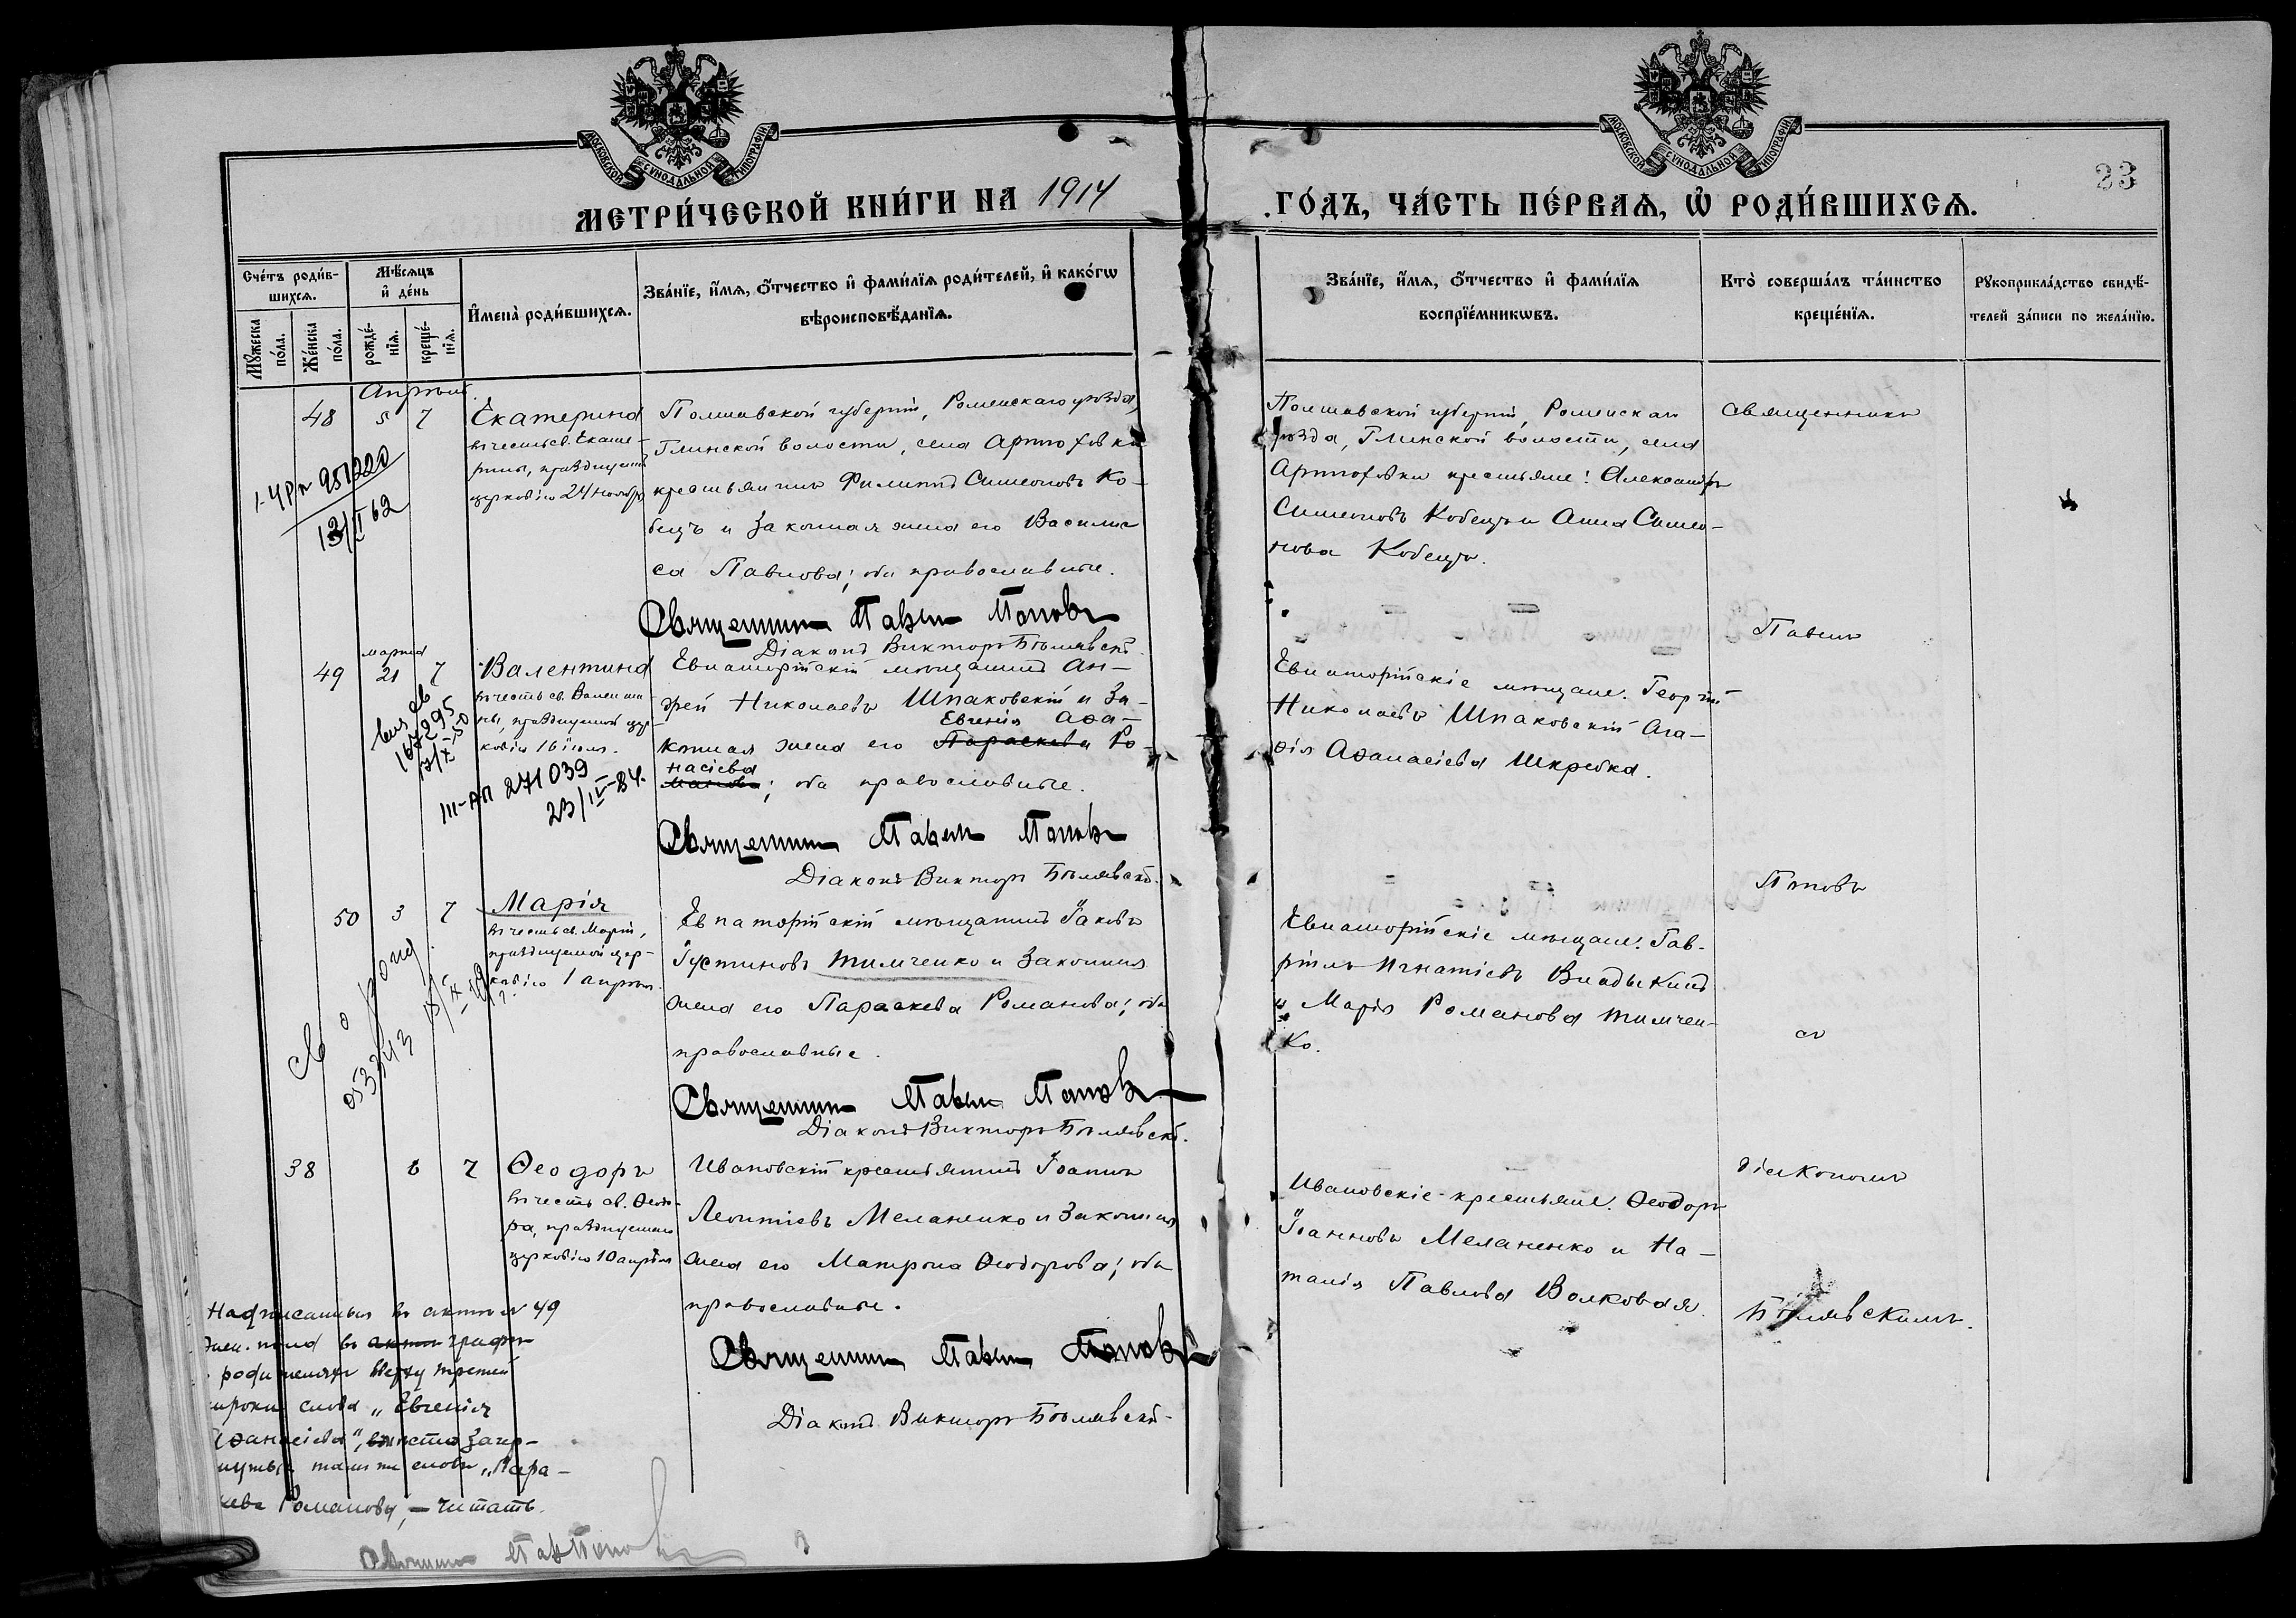 МОСКОВСКОЙ СѴНОДАЛЬНОЙ ТИПОГРАФІИ
МОСКОВСКОЙ СѴНОДАЛЬНОЙ ТИПОГРАФІИ
23
МЕТРИ́ЧЕСКОЙ КНИ́ГИ НА 1914
ГО́ДЪ, ЧА́СТЬ ПЕ́РВАѦ, Ѡ҆ РОДИ́ВШИХСѦ.
Сче́тъ роди́в-
шихсѧ.
Мꙋ́жеска по́ла.
Же́нска по́ла.
Мѣ́сѧцъ
и҆ де́нь
рожде́-
нїѧ.
креще́-
нїѧ.
И҆мена̀ роди́вшихсѧ.
Зва́нїе, и҆́мѧ, ѻ҆́тчество и҆ фами́лїѧ роди́телей, и҆ како́гѡ
вѣроисповѣ́данїѧ.
Зва́нїе, и҆́мѧ, ѻ҆́тчество и҆ фами́лїѧ
воспрїе́мникѡвъ.
Кто̀ соверша́лъ та́инство
креще́нїѧ.
Рꙋкоприкла́дство свидѣ́-
телей за́писи по жела́нїю.
Апрѣль
48 5 7
Екатерина
въ честь св. Екате-
рины, празднуемой
церковію 24 ноября
Полтавской губерніи, Роменскаго уѣзда,
Глинской волости, села Артюховки
крестьянинъ Филиппъ Симеоновъ Ко-
бецъ и законная жена его Васили-
са Павлова; оба православные.
Священникъ Павелъ Поповъ
Діаконъ Викторъ Бѣлявскій.
Полтавской губерніи, Роменскаго
уѣзда, Глинской волости, села
Артюховки крестьяне: Александръ
Симеоновъ Кобецъ и Анна Симео-
нова Кобецъ.
священникъ
Павелъ
Поповъ
съ
діакономъ
Бѣлявскимъ.
951220
13/II 62
марта
49 21 7
Валентина
въ честь св. Валенти-
ны, празднуемой цер-
ковію 16 іюля.
Евпаторійскій мѣщанинъ Ан-
дрей Николаевъ Шпаковскій и за-
Евгенія Аѳа-
конная жена его Параскева Ро-
насіева
манова; оба православные.
Священникъ Павелъ Поповъ
Діаконъ Викторъ Бѣлявскій.
Евпаторійскіе мѣщане: Георгій
Николаевъ Шпаковскій Ага-
ѳія Аѳанасіева Шкребка.
167295
III-АП 271039
23/IV-84.
50 3 7
Марія
въ честь св. Маріи,
празднуемой цер-
ковію 1 апрѣля.
Евпаторійскій мѣщанинъ Іаковъ
Іустиновъ Тимченко и законная
жена его Параскева Романова; оба
православные.
Священникъ Павелъ Поповъ
Діаконъ Викторъ Бѣлявскій.
Евпаторійскіе мѣщане: Гав-
ріилъ Игнатіевъ Владыкинъ
и Марія Романова Тимчен-
ко.
св о рожд
053343
38 6 7
Ѳеодоръ
въ честь св. Ѳеодо-
ра, празднуемаго
церковію 10 апрѣля
Ивановскій крестьянинъ Іоаннъ
Леонтіевъ Меланенко и законная
жена его Матрона Ѳеодорова; оба
православные.
Священникъ Павелъ Поповъ
Діаконъ Викторъ Бѣлявскій.
Ивановскіе крестьяне: Ѳеодоръ
Іоанновъ Меланенко и На-
талія Павлова Волковая.
Надписанныя въ актѣ № 49
жен. пола въ актѣ графѣ
родителяхъ вверху третьей
строки слова „Евгенія
Аѳанасіева", вмѣсто зачер-
кнутыхъ тамъ же словъ „Пара-
скева Романова, – читать.
Священникъ Пав Поповъ